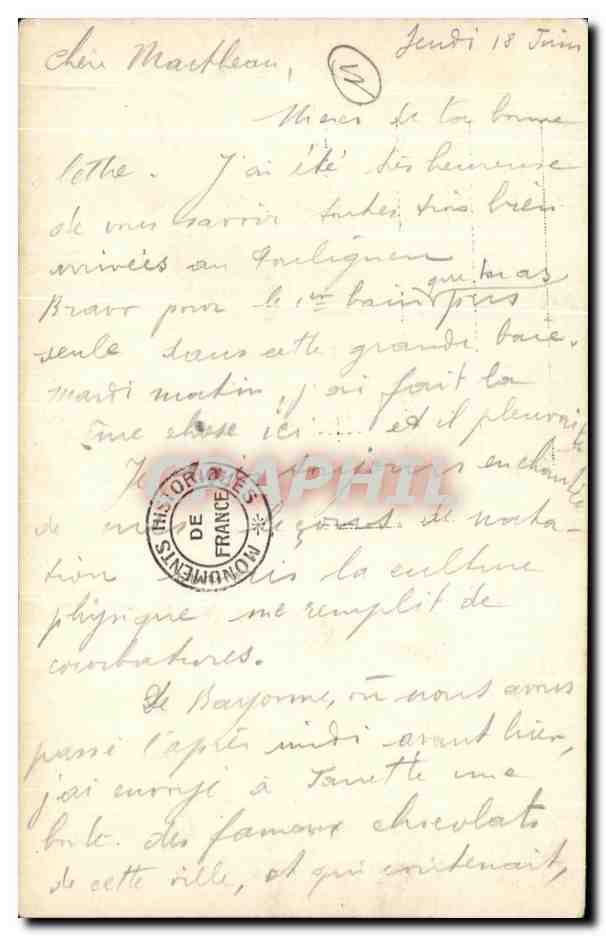 Jeudi 18 Juin
Chère
Merci de ta bonne
lettre. J'ai été très heureuse
de vous savoir toutes trois bien
arrivées au Pouliguen
Bravo pour le 1er bain que tu as pris
seule dans cette grande baie.
Mardi matin, j'ai fait la
même chose ici .... et il pleuvait
Je suis toujours enchantée
de mes leçons de nata-
tion mais la culture
physique me remplit de
courbatures.
De Bayonne, où nous avons
passé l'après midi avant hier,
j'ai envoyé à une
boîte des fameux chocolats
de cette ville, et qui contenait,
MONUMENTS HISTORIQUES
DE
FRANCE
CPAPHIL